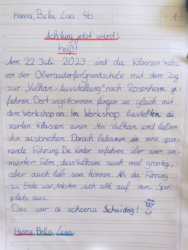 Hanna, Bella, Lisa 4b
Achtung jetzt wird's
heiß!
Am 22. Juli 2023 sind die Klassen
der Oberaudorfer Grundschule mit dem Zug
zur „Vulkan Ausstellung" nach Rosenheim ge-
fahren. Dort angekommen fingen sie gleich mit
dem Workshop an. Im Workshop bastelten die
vierten Klassen einen Vulkan und ließen
ihn ausbrechen. Danach bekamen sie eine span-
nende Führung. Die Kinder erfuhren über einen
Film, dass Vulkane auch mal grantig,
aber auch lieb sein können. Als die Führung
zu Ende war, tobten sich alle auf dem Spiel-
platz aus.
Des war a scheena Schuidog!
Hanna, Bella, Lisa